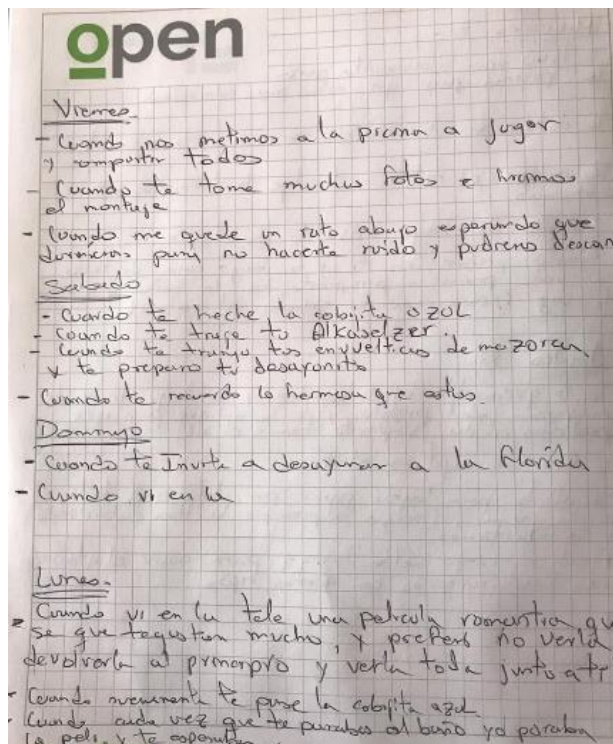 open
Viernes
- Cuando nos metimos a la piscina a jugar
y compartir todos
- Cuando te tome muchas fotos e hicimos
el montaje
- Cuando me quede un rato abajo esperando que
durmieras para no hacerte ruido y pudieras descan
Sabado
- Cuando te heche la cobijita azul
- Cuando te traje tu Alkaselzer.
- Cuando te traigo tus envuelticos de mazorca,
y te preparo tu desayunito
- Cuando te recuerdo lo hermosa que estas.
Domingo
- Cuando te Invite a desayunar a la Florida
- Cuando vi en la
Lunes.
- Cuando vi en la tele una pelicula romantica qu
se que te gustan mucho, y preferi no verla
devolverla al principio y verla toda junto a ti
- Cuando nuevamente te puse la cobijita azul.
- Cuando cada vez que te parabas al baño yo paraba
la peli. y te esperaba